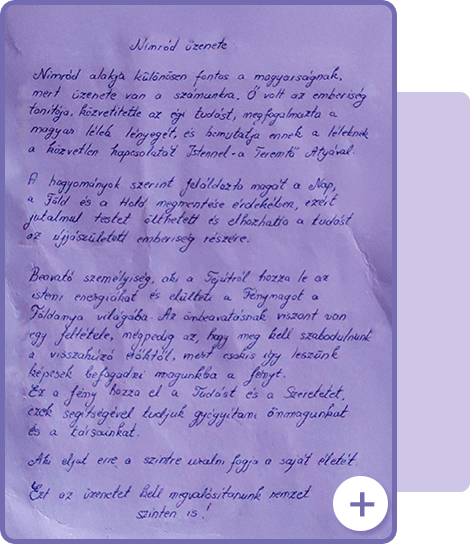 Nimród üzenete
Nimród alakja különösen fontos a magyarságnak,
mert üzenete van a számunkra. Ő volt az emberiség
tanítója, közvetítette az égi tudást, megfogalmazta a
magyar lélek lényegét, és bemutatja ennek a léleknek
a közvetlen kapcsolatát Istennel - a Teremtő Atyával.
A hagyományok szerint feláldozta magát a Nap,
a Föld és a Hold megmentése érdekében, ezért
jutalmul testet ölthetett és elhozhatta a tudást
az újjászületett emberiség részére.
Beavató személyiség, aki a Tejútról hozza le az
isteni energiákat és elülteti a Fénymagot a
Földanya világába. Az önbeavatásnak viszont van
egy feltétele, mégpedig az, hogy meg kell szabadulnunk
a visszahúzó erőktől, mert csakis így leszünk
képesek befogadni magunkba a fényt.
Ez a fény hozza el a Tudást és a Szeretetet,
ezek segítségével tudjuk gyógyítani önmagunkat
és a társainkat.
Aki eljut erre a szintre uralni fogja a saját életét.
Ezt az üzenetet kell megvalósítanunk nemzet
szinten is!